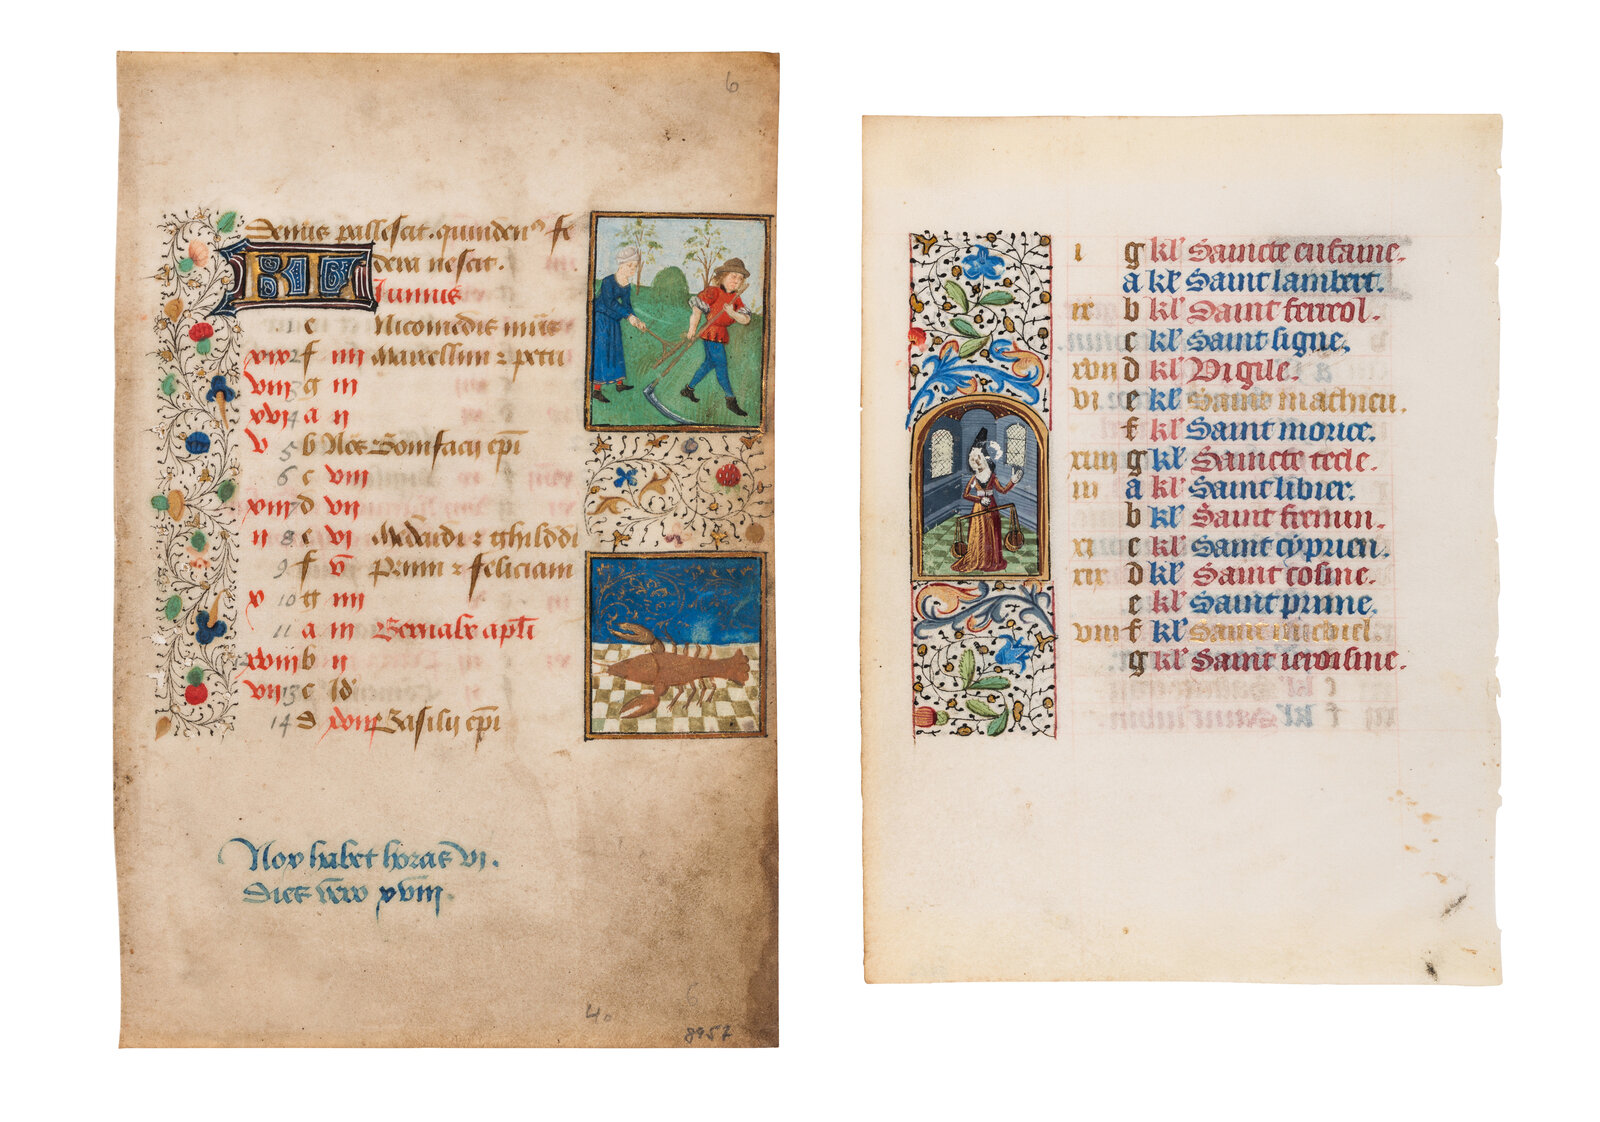 6
Denus pallescit. quindenꝰ fe
dera nescit.
KL
Junius
1 e Nicomedis
xix 2 f iiii Marcellini ⁊ petri
viii g iii
xvi 4 a ii
v 5 b Nōs Bonifacij ep̄i
6 c viii
xiii d vii
ii 8 e vi Medardi ⁊ ghildardi
9 f v Primi ⁊ feliciani
x 10 g iiii
11 a iii Bernabe apl̄i
xviii b ii
vii 13 c Id'
14 d xviii Basilij ep̄i
Nox habet horas vi.
Dies vero xviii.
6
4
8957
i g kl' Saincte eufaine.
a kl' Saint lambert.
ix b kl' Saint ferreol.
c kl' Saint signe.
xvii d kl' Vigile.
vi e kl' Saint mathieu.
f kl' Saint morice.
xiiii g kl' Saincte tecle.
iii a kl' Saint libier.
b kl' Saint fremin.
xi c kl' Saint cyprien.
xix d kl' Saint cosme.
e kl' Saint prime.
viii f kl' Saint michiel.
g kl' Saint ieroisme.